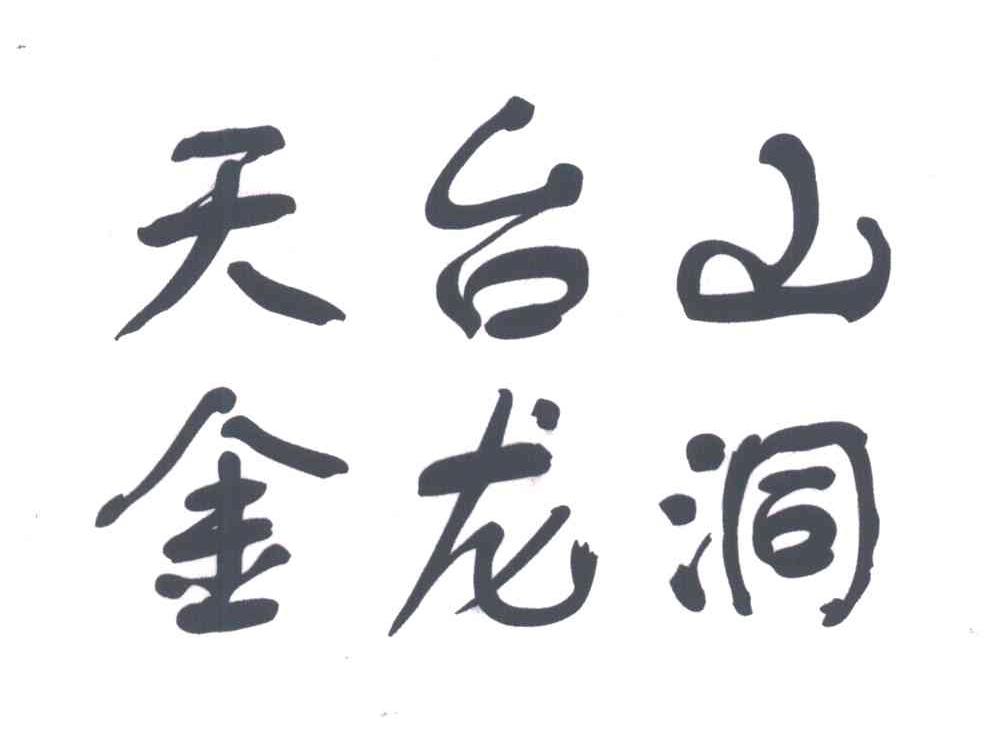 天台山
金龙洞